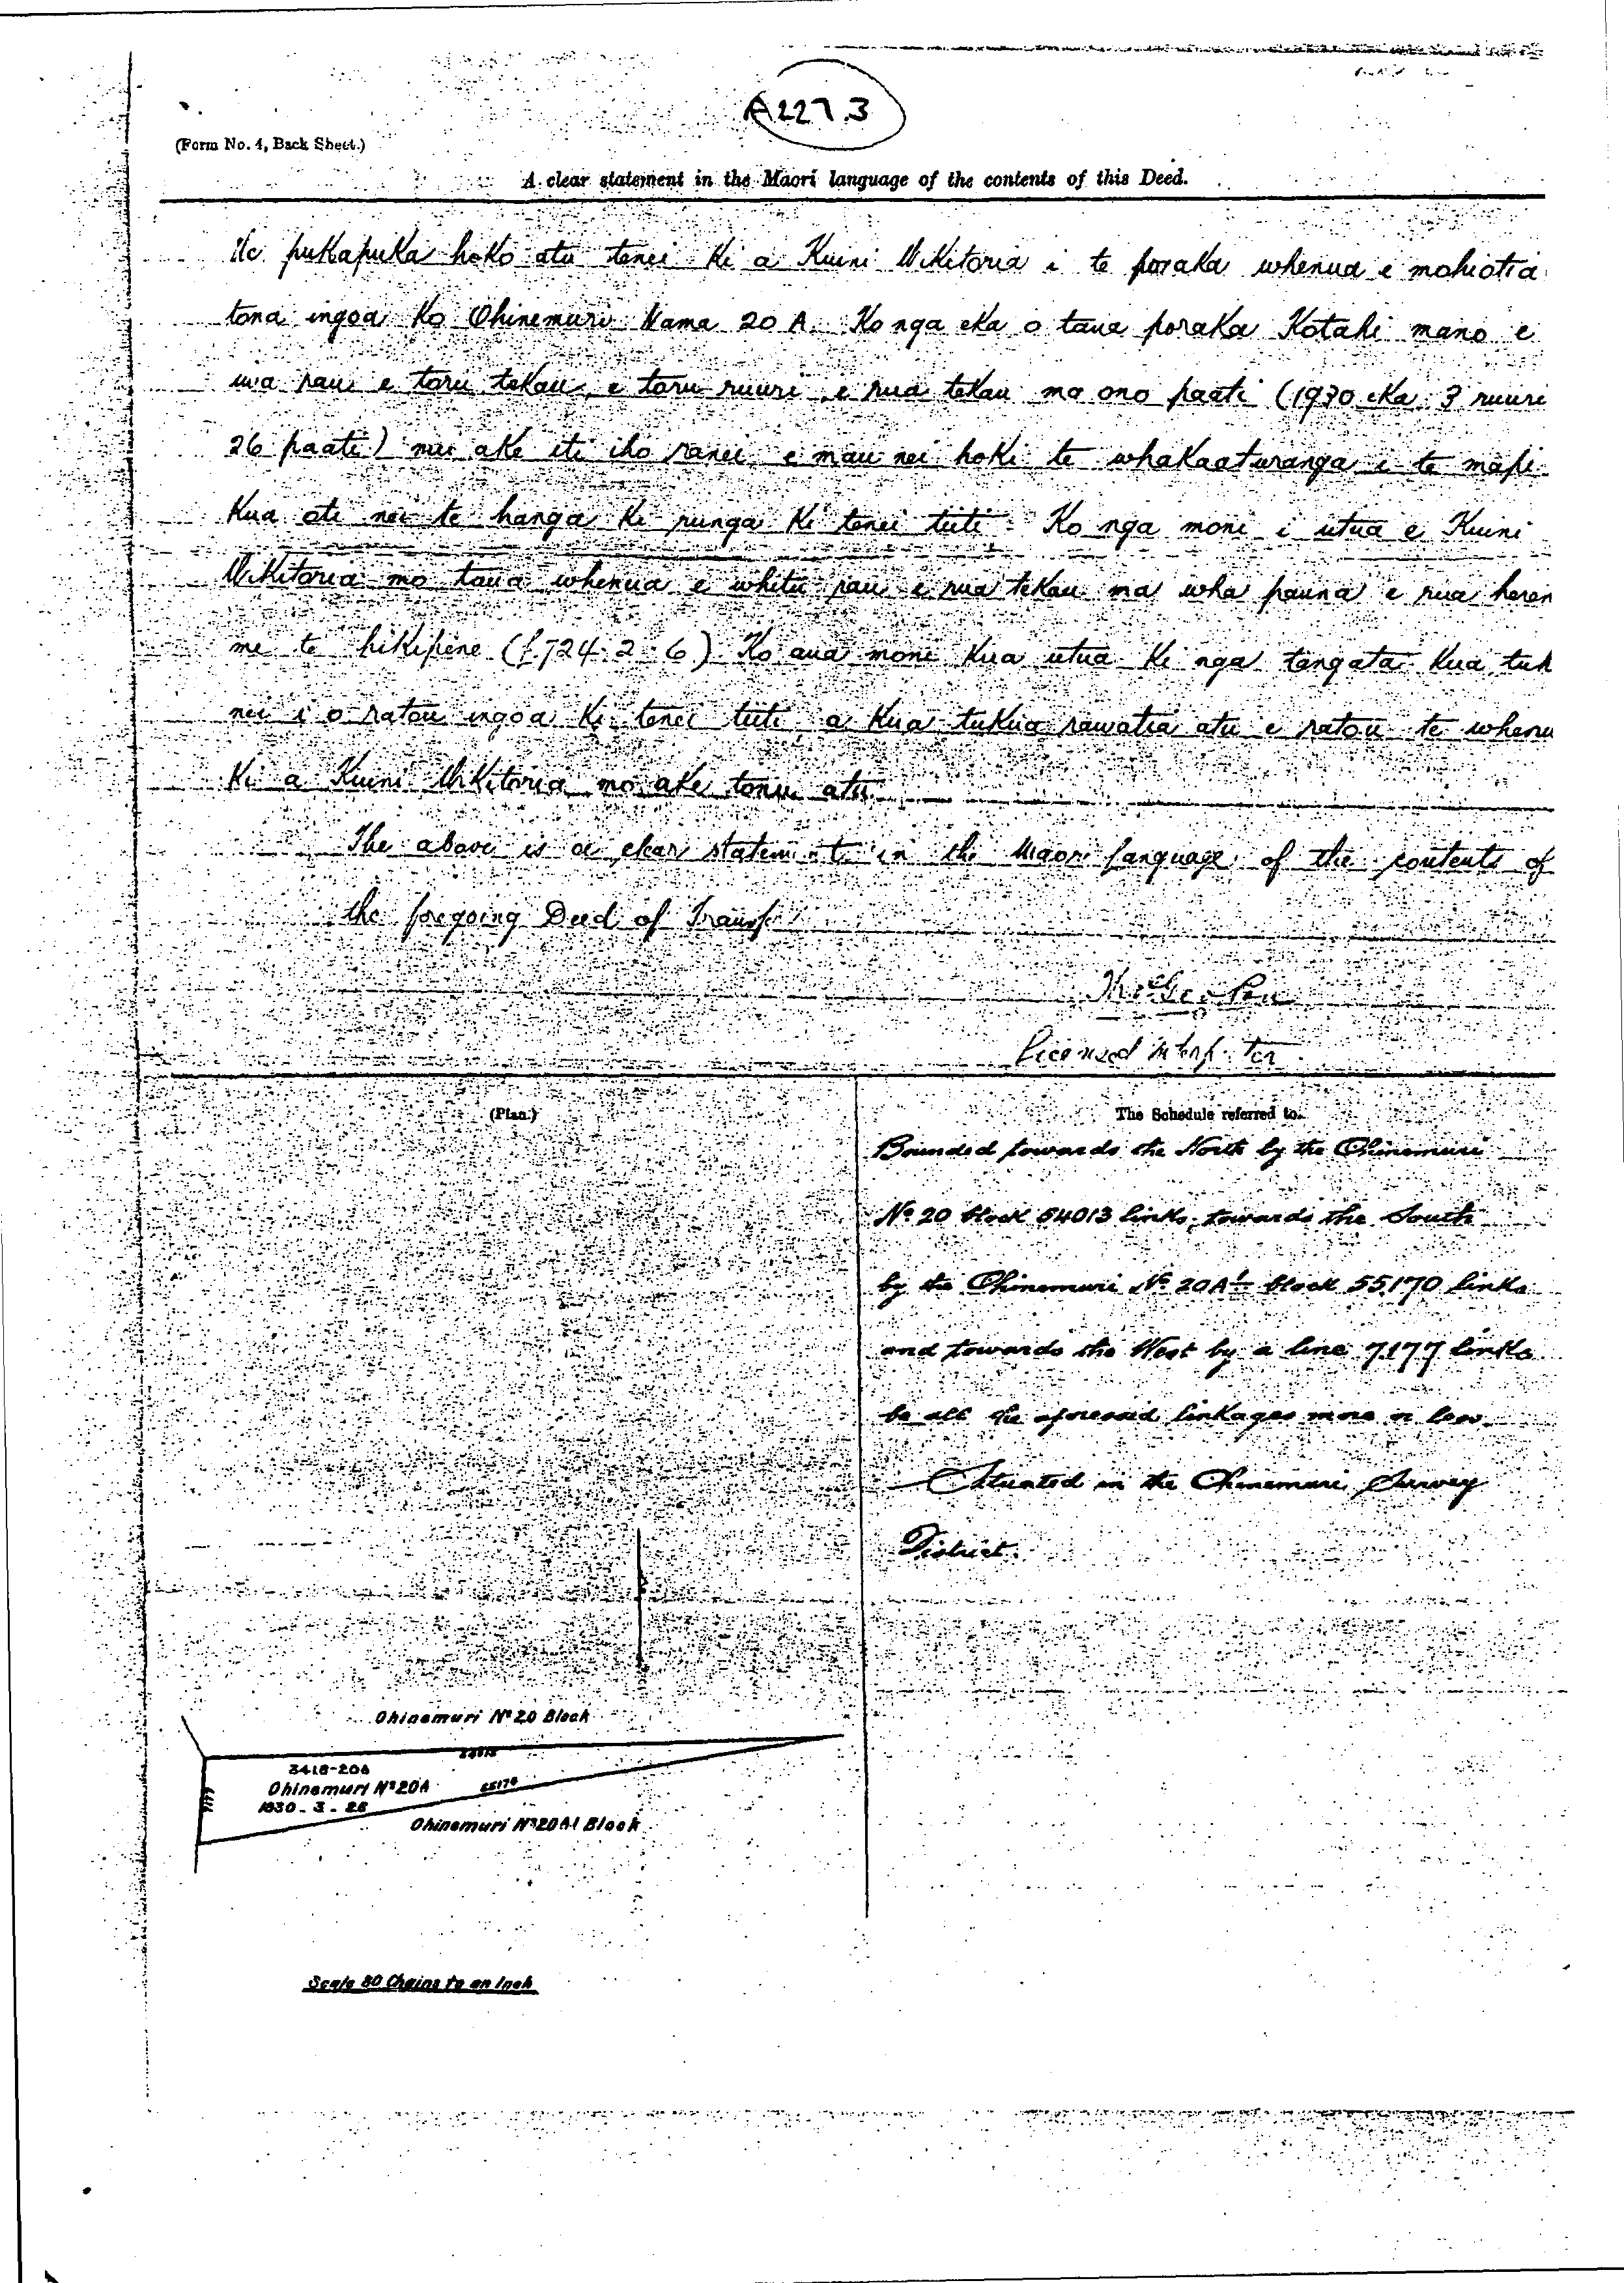 A227.3
(Form No. 4, Back Sheet.)
A clear statement in the Maori language of the contents of this Deed.
He pukapuka hoko atu tenei ki a Kuini Wikitoria i te poraka whenua e mohiotia
tona ingoa ko Ohinemuri Nama 20 A. Ko nga eka o taua poraka Kotahi mano e
iwa rau e toru tekau, e toru ruuri, e rua tekau ma ono paati (1930 eka 3 ruuri
26 paati) nui ake iti iho ranei e mau nei hoki te whakaaturanga i te mapi
Kua oti nei te hanga ki runga ki tenei tiiti Ko nga moni i utua e Kuini
Wikitoria mo taua whenua e whitu rau e rua tekau ma wha pauna e rua heren
me te hikipene (£724.2.6) Ko aua moni kua utua ki nga tangata kua tuk
nei i o ratou ingoa ki tenei tiiti a kua tukua rawatia atu e ratou te whenu
ki a Kuini Wikitoria mo ake tonu atu
The above is a clear statem t in the Maori language of the contents of
the foregoing Deed of Transf
Licensed Interp ter
(Plan.)
The Schedule referred to.
Bounded towards the North by the Ohinemuri
No 20 block 54013 links, towards the South
by the Ohinemuri No 20A1 block 55170 links
and towards the West by a line 7177 links
be all the aforesaid linkages more or less.
Situated in the Ohinemuri Survey
District.
Ohinemuri No 20 Block
54013
3418-20A
Ohinemuri No 20A
55170
1930 - 3 - 26
7177
Ohinemuri No 20A1 Block
Scale 80 Chains to an Inch